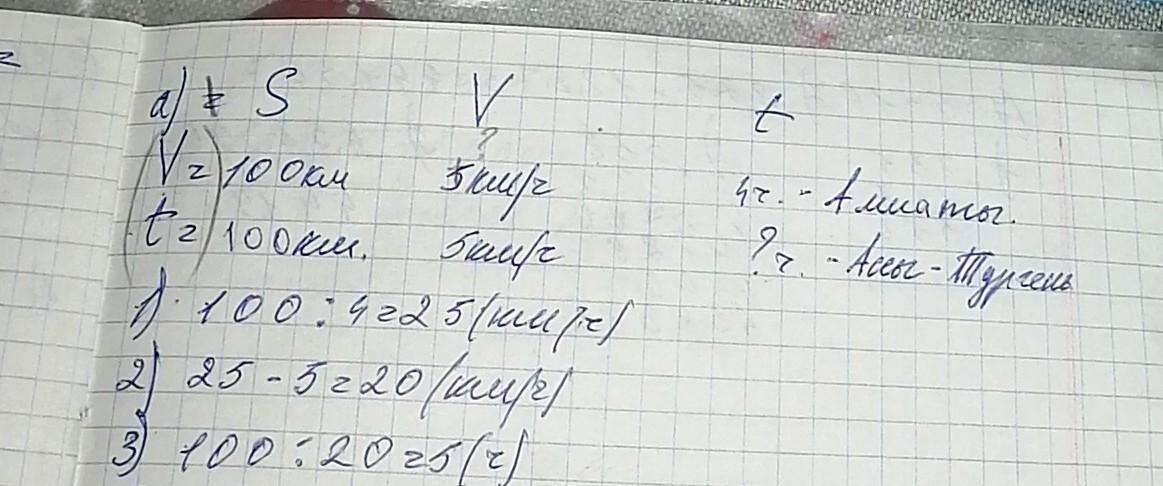 а) S V t
?
V = 100км 5км/ч 4ч. - Алматы.
t = 100км. 5км/ч ?ч. - Ассы - Тургень
1) 100 : 4 = 25 (км/ч)
2) 25 - 5 = 20 (км/ч)
3) 100 : 20 = 5 (ч)